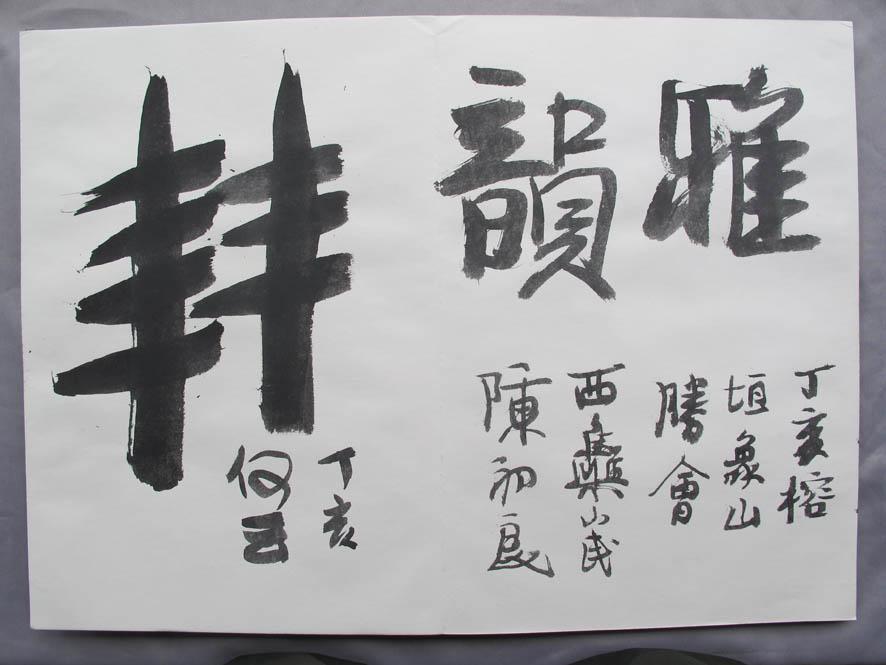 雅韻
丁亥榕
垣象山
勝會
西山民
陳初良
丁亥
何